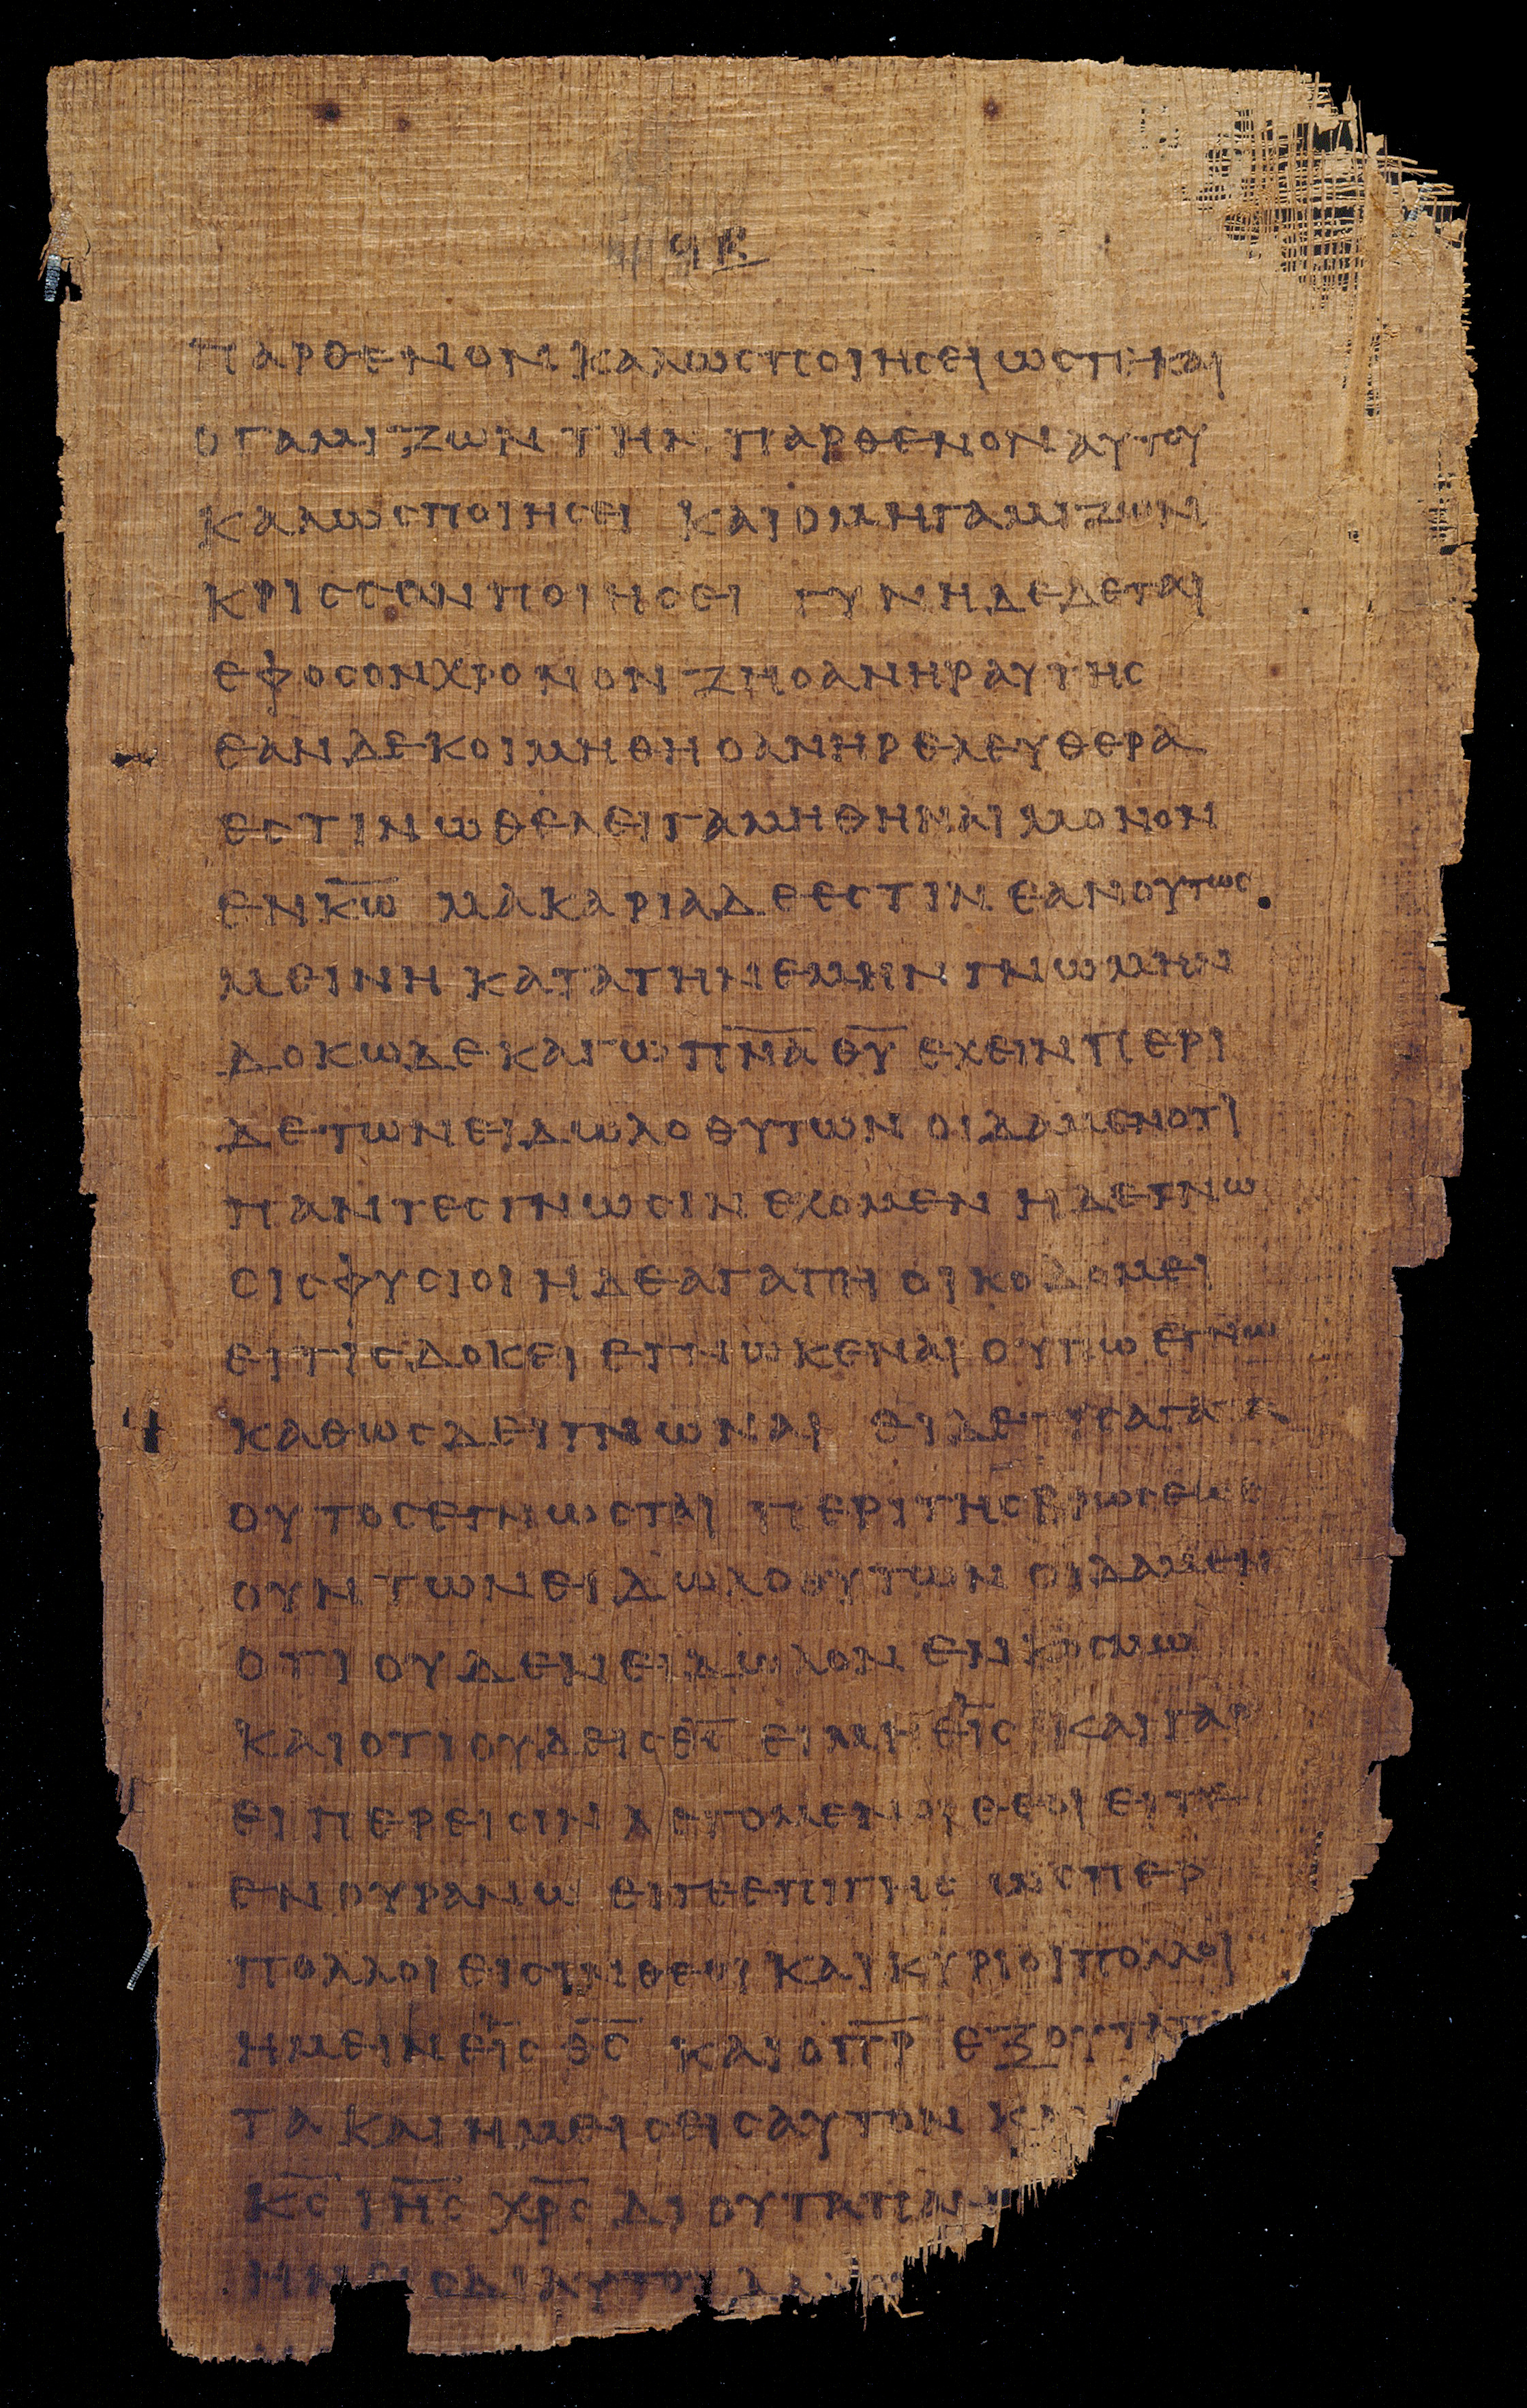 ϥⲃ
ΠΑΡΘΕΝΟΝ ΚΑΛΩΣ ΠΟΙΗΣΕΙ ΩΣΤΕ ΚΑΙ
Ο ΓΑΜΙΖΩΝ ΤΗΝ ΠΑΡΘΕΝΟΝ ΑΥΤΟΥ
ΚΑΛΩΣ ΠΟΙΗΣΕΙ ΚΑΙ Ο ΜΗ ΓΑΜΙΖΩΝ
ΚΡΙΣΣΟΝ ΠΟΙΗΣΕΙ ΓΥΝΗ ΔΕΔΕΤΑΙ
ΕΦ ΟΣΟΝ ΧΡΟΝΟΝ ΖΗ Ο ΑΝΗΡ ΑΥΤΗΣ
ΕΑΝ ΔΕ ΚΟΙΜΗΘΗ Ο ΑΝΗΡ ΕΛΕΥΘΕΡΑ
ΕΣΤΙΝ Ω ΘΕΛΕΙ ΓΑΜΗΘΗΝΑΙ ΜΟΝΟΝ
ΕΝ Κ̅Ω̅ ΜΑΚΑΡΙΑ ΔΕ ΕΣΤΙΝ ΕΑΝ ΟΥΤΩΣ
ΜΕΙΝΗ ΚΑΤΑ ΤΗΝ ΕΜΗΝ ΓΝΩΜΗΝ
ΔΟΚΩ ΔΕ ΚΑΓΩ Π̅Ν̅Α̅ Θ̅Υ̅ ΕΧΕΙΝ ΠΕΡΙ
ΔΕ ΤΩΝ ΕΙΔΩΛΟΘΥΤΩΝ ΟΙΔΑΜΕΝ ΟΤΙ
ΠΑΝΤΕΣ ΓΝΩΣΙΝ ΕΧΟΜΕΝ Η ΔΕ ΓΝΩ
ΣΙΣ ΦΥΣΙΟΙ Η ΔΕ ΑΓΑΠΗ ΟΙΚΟΔΟΜΕΙ
ΕΙ ΤΙΣ ΔΟΚΕΙ ΕΓΝΩΚΕΝΑΙ ΟΥΠΩ ΕΓΝΩ
ΚΑΘΩΣ ΔΕΙ ΓΝΩΝΑΙ ΕΙ ΔΕ ΤΙΣ ΑΓΑΠΑ
ΟΥΤΟΣ ΕΓΝΩΣΤΑΙ ΠΕΡΙ ΤΗΣ ΒΡΩΣΕΩΣ
ΟΥΝ ΤΩΝ ΕΙΔΩΛΟΘΥΤΩΝ ΟΙΔΑΜΕΝ
ΟΤΙ ΟΥΔΕΝ ΕΙΔΩΛΟΝ ΕΝ ΚΟΣΜΩ
ΚΑΙ ΟΤΙ ΟΥΔΕΙΣ Θ̅Σ̅ ΕΙ ΜΗ ΕΙΣ ΚΑΙ ΓΑΡ
ΕΙΠΕΡ ΕΙΣΙΝ ΛΕΓΟΜΕΝΟΙ ΘΕΟΙ ΕΙΤΕ
ΕΝ ΟΥΡΑΝΩ ΕΙΤΕ ΕΠΙ ΓΗΣ ΩΣΠΕΡ
ΠΟΛΛΟΙ ΕΙΣΙΝ ΘΕΟΙ ΚΑΙ ΚΥΡΙΟΙ ΠΟΛΛΟΙ
ΗΜΕΙΝ ΕΙΣ Θ̅Σ̅ ΚΑΙ Ο Π̅Τ̅Ρ̅ ΕΞ ΟΥ ΤΑ Π
ΤΑ ΚΑΙ ΗΜΕΙΣ ΕΙΣ ΑΥΤΟΝ ΚΑ
Κ̅Σ̅ Ι̅Η̅Σ̅ Χ̅Ρ̅Σ̅ ΔΙ ΟΥ ΤΑ ΠΑΝ
ΗΜΕΙΣ ΔΙ ΑΥΤΟΥ